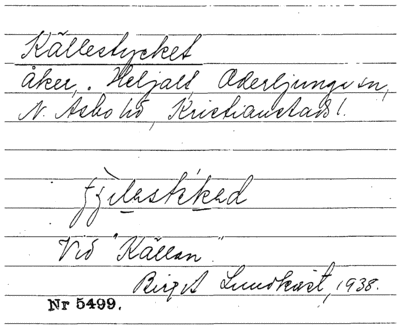 Källestycket
åker, Heljalt, Oderljunga sn,
N. Asbo hd, Kristianstads l.
Vid "Källan".
Birgit Lundkvist, 1938.
Nr 5499.